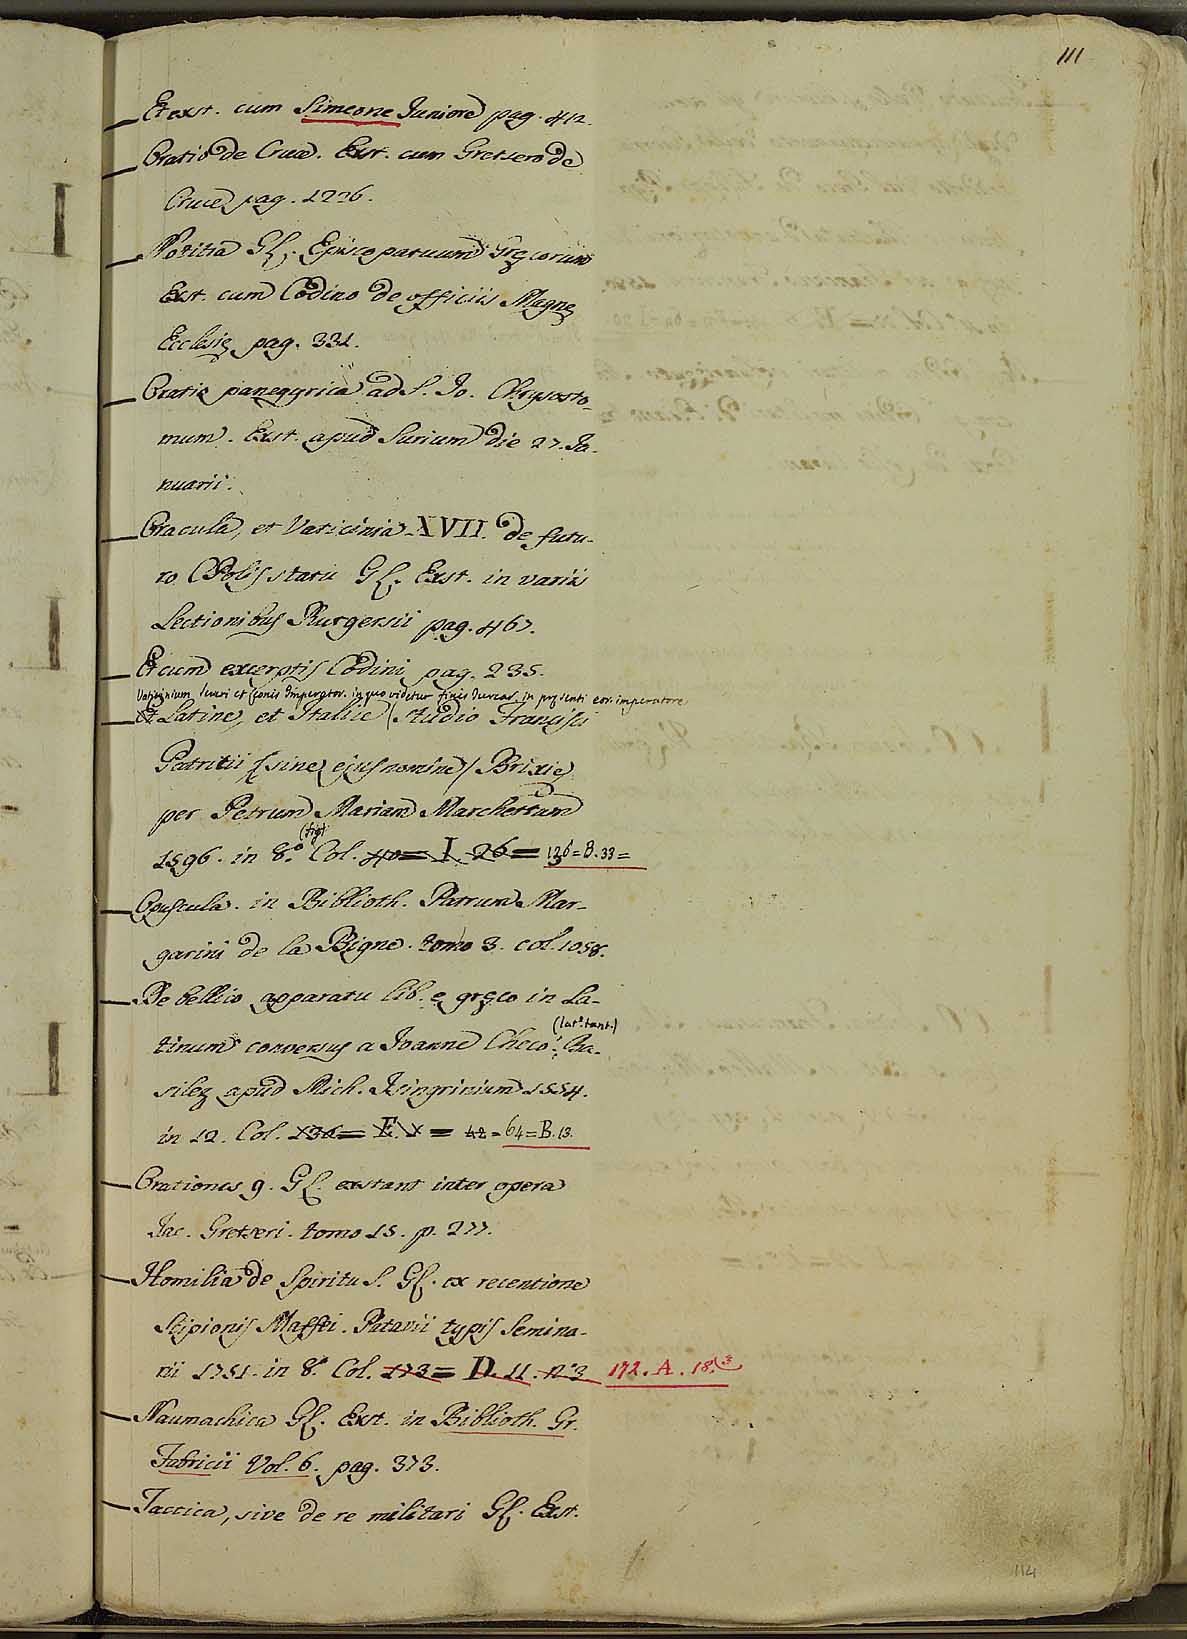 111
Et exst. cum Simeone Juniore pag. 412.
Oratio de Cruce. Exst. cum Gretsero de
Cruce pag. 1236.
Notitia Gl. Episcopatuum Gręcorum
Exst. cum Codino de officiis Magnę
Ecclesię pag. 331.
Oratio panegyrica ad S. Jo. Chrysosto-
mum. Exst. apud Surium die 27. Ja-
nuarii.
Oracula, et Vaticinia XVII. de futu-
ro CPolis statu Gl. Exst. in variis
Lectionibus Rutgersii pag. 467.
Et cum excerptis Codini pag. 235.
Vaticinium Severi et Leonis Imperator. in quo videtur finis Turcar. in pręsenti eor. imperatore
Et Latine, et Italice (studio Francisci
Patritii (sine ejus nomine) Brixię
per Petrum Mariam Marchettum
(fig)
1596. in 8.° Col. 40 = I. 26 = 136 = B. 33 =
Opuscula. in Biblioth. Patrum Mar-
garini de la Bigne. tomo 3. col. 1058.
De bellico apparatu lib. e gręco in La-
(lat.e tant.)
tinum conversus a Joanne Checo. Ba-
sileę apud Mich. Isingrinium 1554.
in 12. Col. 136 = E. V = 42 = 64 = B. 13.
Orationes 9. Gl. exstant inter opera
Jac. Gretseri. tomo 15. p. 277.
Homilia de Spiritu S. Gl. ex recentione
Scipionis Maffei. Patavii typis Semina-
rii 1751. in 8.° Col. 173 = D. 11. n° 3 172. A. 18.(3
Naumachica Gl. Exst. in Biblioth. Gr.
Fabricii Vol. 6. pag. 373.
Tactica, sive de re militari Gl. Exst.
114